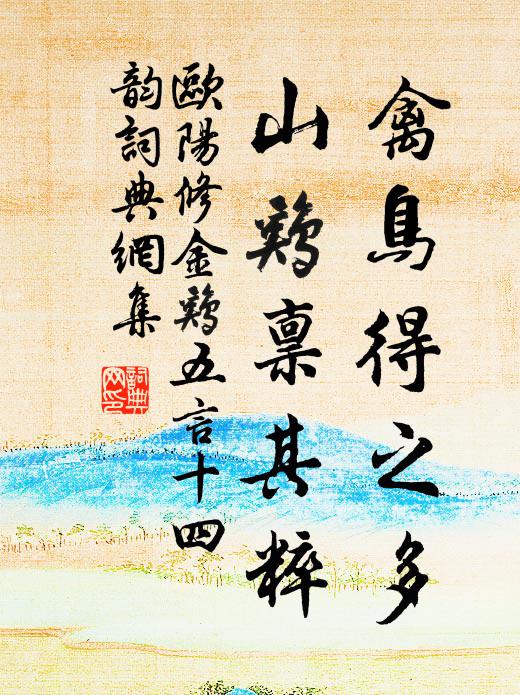 禽鳥得之多
山鷄禀其粹
歐陽修金鷄五言十四
韵詞典網集
詞典
网印